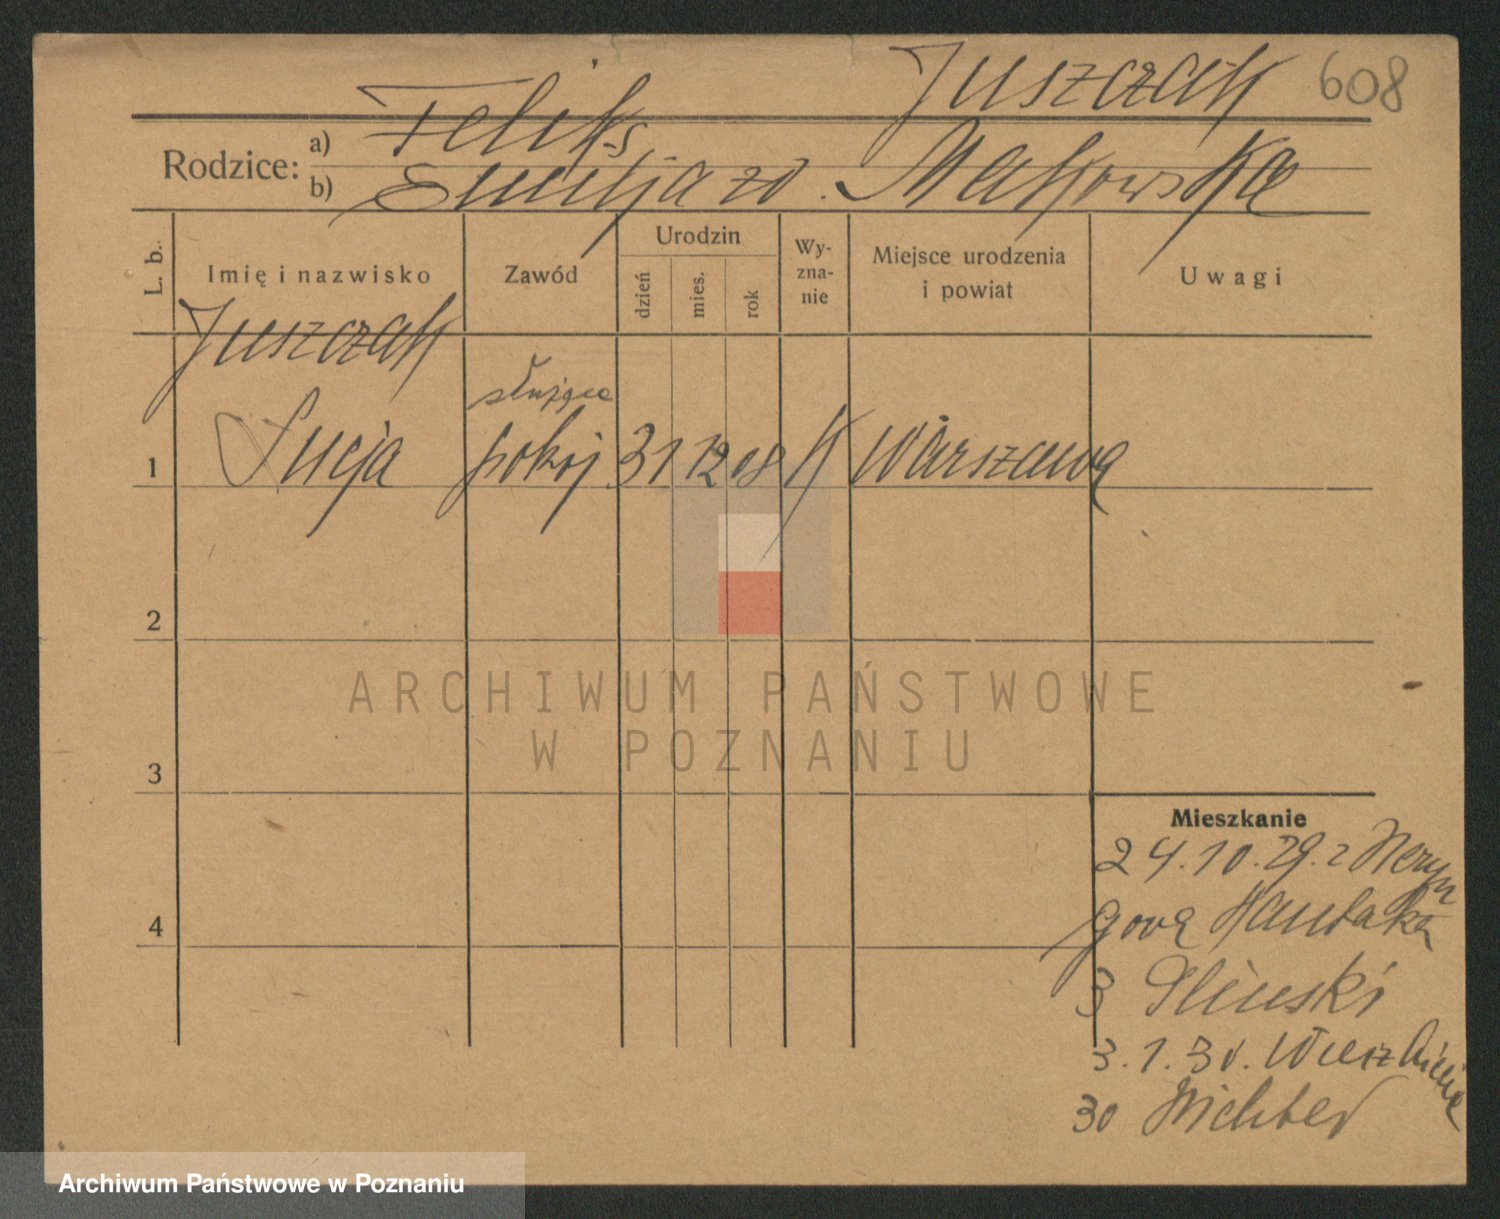 Juszczak 608
Rodzice: a) Feliks
b) Emilja zd. Makowska
L. b. Imię i nazwisko Zawód Urodzin dzień mies. rok Wyznanie Miejsce urodzenia i powiat Uwagi
Juszczak
służąca
1 Lucja pokoj 31 12 08 K Warszawa
2
ARCHIWUM PAŃSTWOWE
W POZNANIU
3
Mieszkanie
24.10.29. z
4
3 Sliuski
3.1.30.
30 Richter
Archiwum Państwowe w Poznaniu